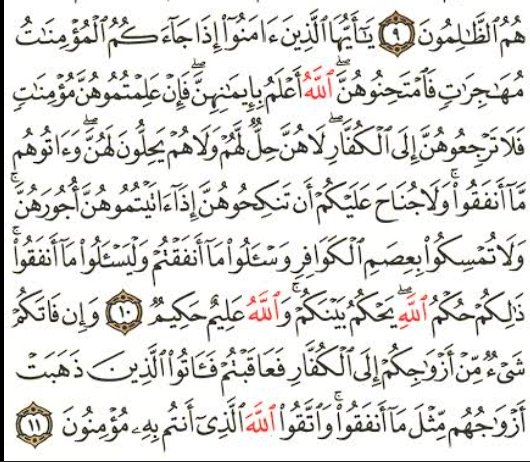 هُمُ ٱلظَّـٰلِمُونَ ٩ يَـٰٓأَيُّهَا ٱلَّذِينَ ءَامَنُوٓا۟ إِذَا جَآءَكُمُ ٱلْمُؤْمِنَـٰتُ
مُهَـٰجِرَٰتٍ فَٱمْتَحِنُوهُنَّ ۖ ٱللَّهُ أَعْلَمُ بِإِيمَـٰنِهِنَّ ۖ فَإِنْ عَلِمْتُمُوهُنَّ مُؤْمِنَـٰتٍ
فَلَا تَرْجِعُوهُنَّ إِلَى ٱلْكُفَّارِ ۖ لَا هُنَّ حِلٌّ لَّهُمْ وَلَا هُمْ يَحِلُّونَ لَهُنَّ ۖ وَءَاتُوهُم
مَّآ أَنفَقُوا۟ ۚ وَلَا جُنَاحَ عَلَيْكُمْ أَن تَنكِحُوهُنَّ إِذَآ ءَاتَيْتُمُوهُنَّ أُجُورَهُنَّ ۚ
وَلَا تُمْسِكُوا۟ بِعِصَمِ ٱلْكَوَافِرِ وَسْـَٔلُوا۟ مَآ أَنفَقْتُمْ وَلْيَسْـَٔلُوا۟ مَآ أَنفَقُوا۟ ۚ
ذَٰلِكُمْ حُكْمُ ٱللَّهِ ۖ يَحْكُمُ بَيْنَكُمْ ۚ وَٱللَّهُ عَلِيمٌ حَكِيمٌ ١٠ وَإِن فَاتَكُمْ
شَىْءٌ مِّنْ أَزْوَٰجِكُمْ إِلَى ٱلْكُفَّارِ فَعَاقَبْتُمْ فَـَٔاتُوا۟ ٱلَّذِينَ ذَهَبَتْ
أَزْوَٰجُهُم مِّثْلَ مَآ أَنفَقُوا۟ ۚ وَٱتَّقُوا۟ ٱللَّهَ ٱلَّذِىٓ أَنتُم بِهِۦ مُؤْمِنُونَ ١١